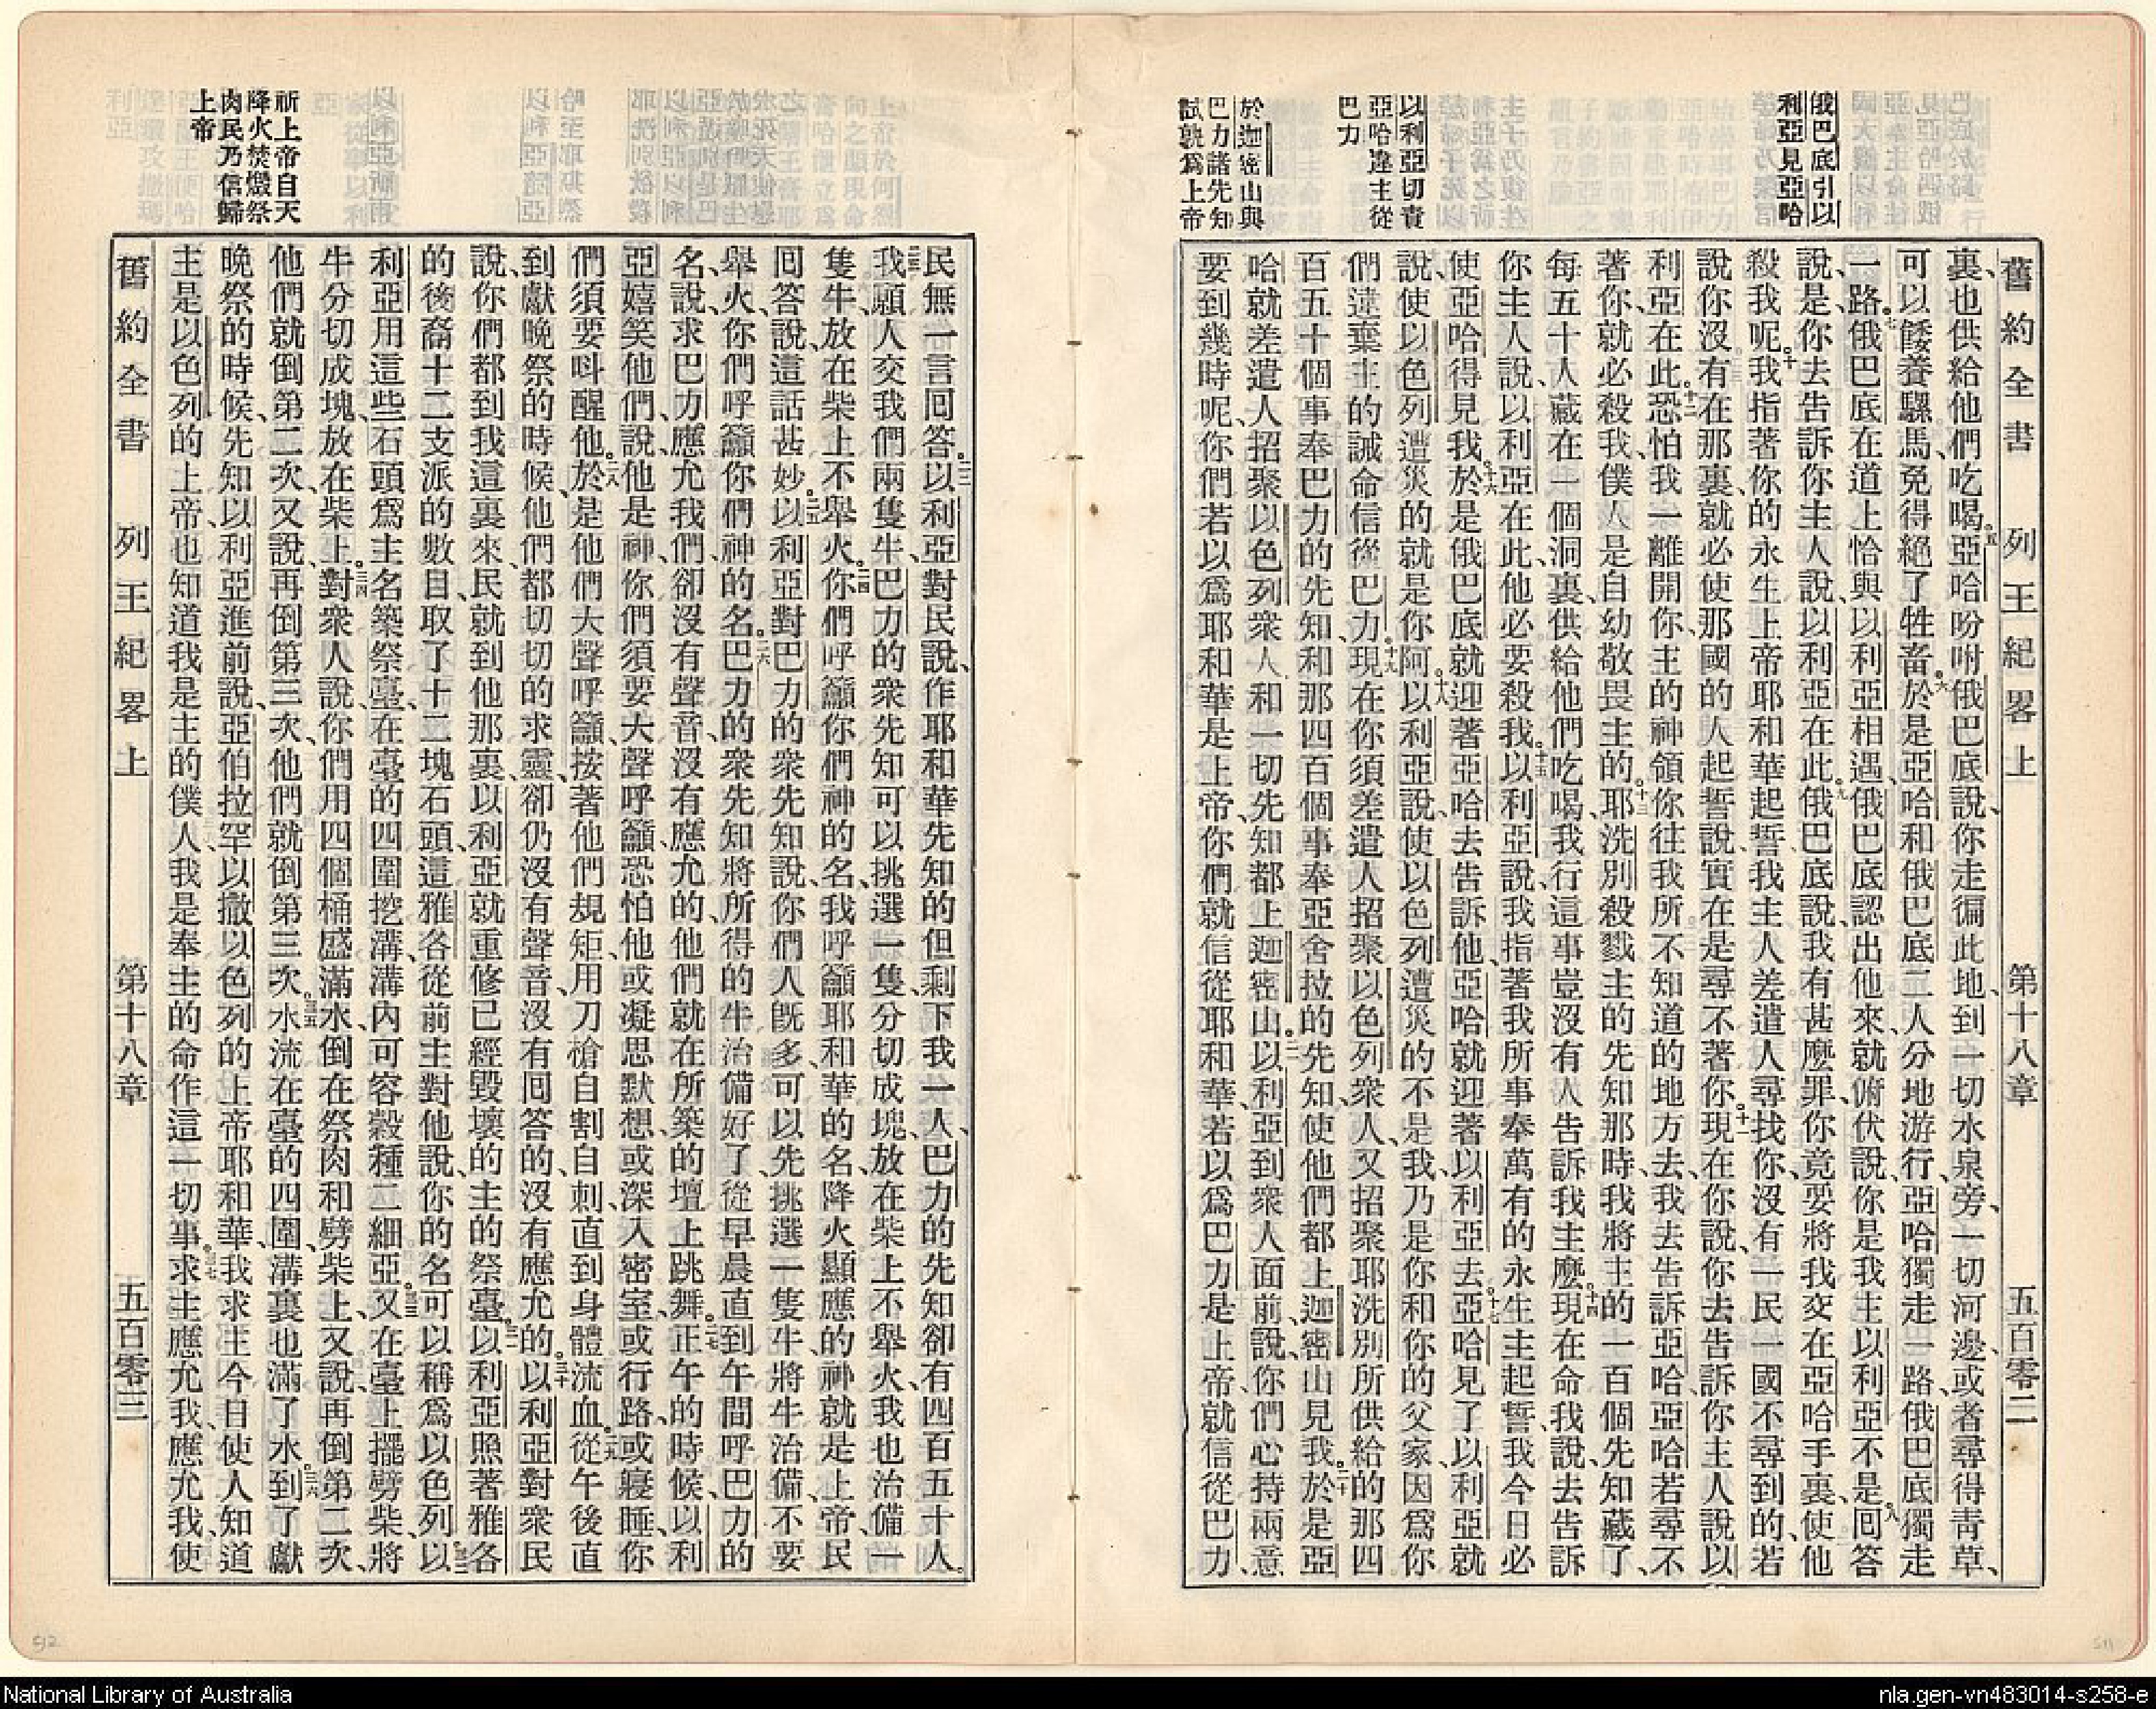 舊約全書 列王紀畧上 第十八章 五百零二
俄巴底引以
利亞見亞哈
以利亞切責
亞哈違主從
巴力
於迦密山與
巴力諸先知
試孰爲上帝
裏、也供給他們吃喝。五亞哈吩咐俄巴底說、你走徧此地、到一切水泉旁、一切河邊、或者尋得青草、
可以餧養騾馬、免得絕了牲畜。六於是亞哈和俄巴底二人分地游行、亞哈獨走一路、俄巴底獨走
一路。七俄巴底在道上恰與以利亞相遇、俄巴底認出他來、就俯伏說、你是我主以利亞不是。八回答
說、是、你去告訴你主人說、以利亞在此。九俄巴底說、我有甚麼罪、你竟要將我交在亞哈手裏、使他
殺我呢。十我指著你的永生上帝耶和華起誓、我主人差遣人尋找你、沒有一民一國不尋到的、若
說你沒有在那裏、就必使那國的人起誓說、實在是尋不著你。十一現在你說、你去告訴你主人說、以
利亞在此。十二恐怕我一離開你、主的神領你往我所不知道的地方去、我去告訴亞哈、亞哈若尋不
著你、就必殺我、僕人是自幼敬畏主的。十三耶洗別殺戮主的先知那時、我將主的一百個先知藏了、
每五十人藏在一個洞裏、供給他們吃喝、我行這事豈沒有人告訴我主麼。十四現在命我說、去告訴
你主人說、以利亞在此、他必要殺我。十五以利亞說、我指著我所事奉萬有的永生主起誓、我今日必
使亞哈得見我。十六於是俄巴底就迎著亞哈去告訴他、亞哈就迎著以利亞去。十七亞哈見了以利亞就
說、使以色列遭災的就是你阿。十八以利亞說、使以色列遭災的不是我、乃是你和你的父家、因爲你
們違棄主的誡命、信從巴力。十九現在你須差遣人招聚以色列衆人、又招聚耶洗別所供給的那四
百五十個事奉巴力的先知、和那四百個事奉亞舍拉的先知、使他們都上迦密山見我。二十於是亞
哈就差遣人招聚以色列衆人、和一切先知都上迦密山。二一以利亞到衆人面前說、你們心持兩意
要到幾時呢、你們若以爲耶和華是上帝、你們就信從耶和華、若以爲巴力是上帝、就信從巴力、
祈上帝自天
降火焚燬祭
肉民乃信歸
上帝
民無一言回答。二二以利亞對民說、作耶和華先知的但剩下我一人、巴力的先知卻有四百五十人。
二三我願人交我們兩隻牛、巴力的衆先知可以挑選一隻、分切成塊、放在柴上不舉火、我也治備一
隻牛、放在柴上不舉火。二四你們呼籲你們神的名、我呼籲耶和華的名、降火顯應的神就是上帝、民
回答說、這話甚妙。二五以利亞對巴力的衆先知說、你們人旣多、可以先挑選一隻牛、將牛治備、不要
舉火、你們呼籲你們神的名。二六巴力的衆先知將所得的牛治備好了、從早晨直到午間呼巴力的
名、說、求巴力應允我們、卻沒有聲音、沒有應允的、他們就在所築的壇上跳舞。二七正午的時候、以利
亞嬉笑他們、說、他是神、你們須要大聲呼籲、恐怕他或凝思默想、或深入密室、或行路、或寢睡、你
們須要呌醒他。二八於是他們大聲呼籲、按著他們規矩、用刀槍自割自刺、直到身體流血。二九從午後直
到獻晚祭的時候、他們都切切的求靈、卻仍沒有聲音、沒有回答的、沒有應允的。三十以利亞對衆民
說、你們都到我這裏來、民就到他那裏、以利亞就重修已經毀壞的主的祭臺。三一以利亞照著雅各
的後裔十二支派的數目、取了十二塊石頭、這雅各從前主對他說、你的名可以稱爲以色列。三二以
利亞用這些石頭爲主名築祭臺、在臺的四圍挖溝、溝內可容穀種二細亞。三三又在臺上擺劈柴、將
牛分切成塊、放在柴上。三四對衆人說、你們用四個桶盛滿水、倒在祭肉和劈柴上、又說、再倒第二次、
他們就倒第二次、又說、再倒第三次、他們就倒第三次。三五水流在臺的四圍、溝裏也滿了水。三六到了獻
晚祭的時候、先知以利亞進前說、亞伯拉罕以撒以色列的上帝耶和華、我求主今日使人知道
主是以色列的上帝、也知道我是主的僕人、我是奉主的命作這一切事。三七求主應允我、應允我、使
舊約全書 列王紀畧上 第十八章 五百零三
512
511
National Library of Australia
nla.gen-vn483014-s258-e